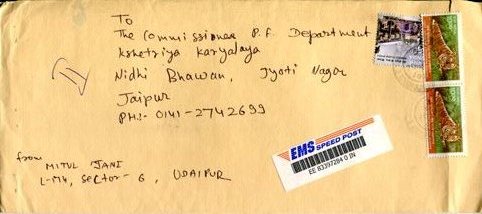 To
The Commissioner P.F. Department
Kshetriya Karyalaya
Nidhi Bhawan, Jyoti Nagar
Jaipur
PH:- 0141-2742699
EMS SPEED POST
EE 83397284 0 IN
from
MITUL JANI
L-M4, Sector-6, UDAIPUR